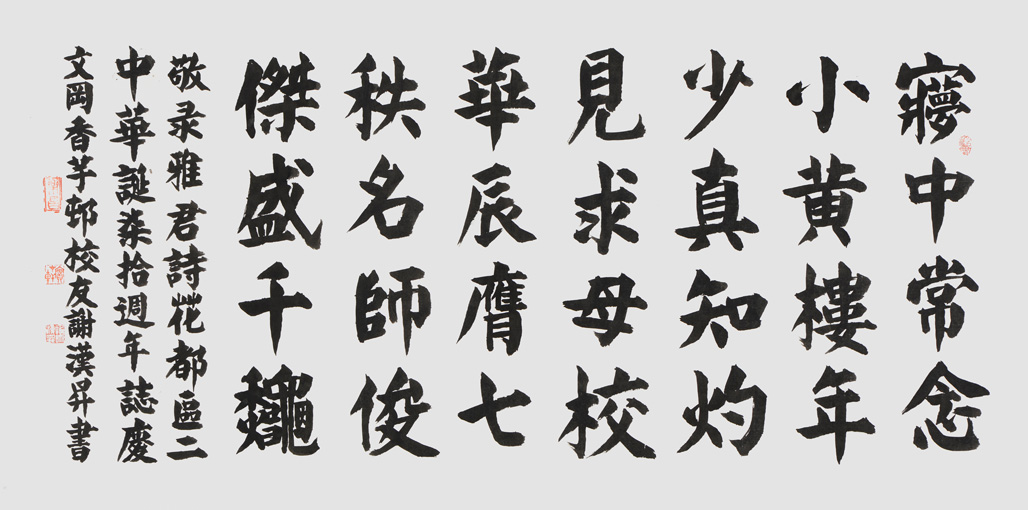 寱中常念
小黄樓年
少真知灼
見求母校
華辰膺七
秩名師俊
傑盛千龝
敬录雅君詩花都區二
中華誕柒拾週年誌慶
文岡香芋邨校友謝漢昇書